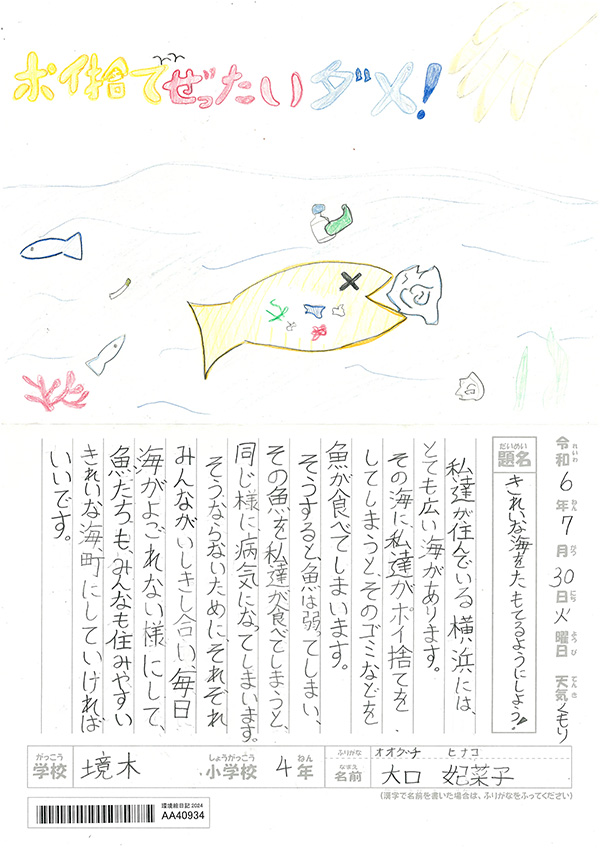 ポイ捨てぜったいダメ!
令和6年7月30日火曜日 天気くもり
れいわ ねん がつ にち ようび てんき
だいめい
題名 きれいな海をたもてるようにしよう!
私達が住んでいる横浜には、
とても広い海があります。
その海に私達がポイ捨てを
してしまうとそのゴミなどを
魚が食べてしまいます。
そうすると魚は弱ってしまい、
その魚を私達が食べてしまうと、
同じ様に病気になってしまいます。
そうならないために、それぞれ
みんながいしきし合い、毎日
海がよごれない様にして、
魚たちも、みんなも住みやすい
きれいな海、町にしていければ
いいです。
がっこう しょうがっこう ねん ふりがな オオグチ ヒナコ
学校 境木 小学校 4年 なまえ 名前 大口 妃菜子
(漢字で名前を書いた場合は、ふりがなをふってください)
環境絵日記2024
AA40934